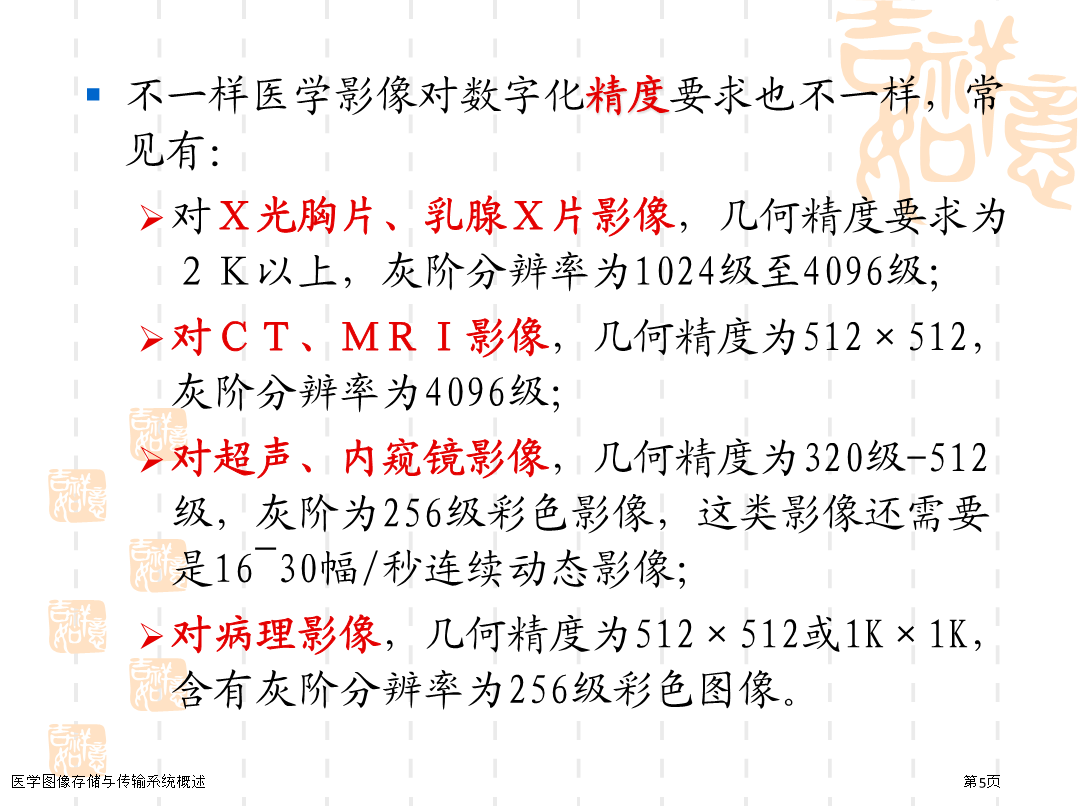 不一样医学影像对数字化精度要求也不一样，常
见有：
对Ｘ光胸片、乳腺Ｘ片影像，几何精度要求为
２Ｋ以上，灰阶分辨率为1024级至4096级；
对ＣＴ、ＭＲＩ影像，几何精度为512×512，
灰阶分辨率为4096级；
对超声、内窥镜影像，几何精度为320级-512
级，灰阶为256级彩色影像，这类影像还需要
是16‾30幅/秒连续动态影像；
对病理影像，几何精度为512×512或1K×1K，
含有灰阶分辨率为256级彩色图像。
吉祥如意
吉祥如意
吉祥如意
吉祥如意
吉祥如意
吉祥如意
吉祥如意
医学图像存储与传输系统概述
第5页